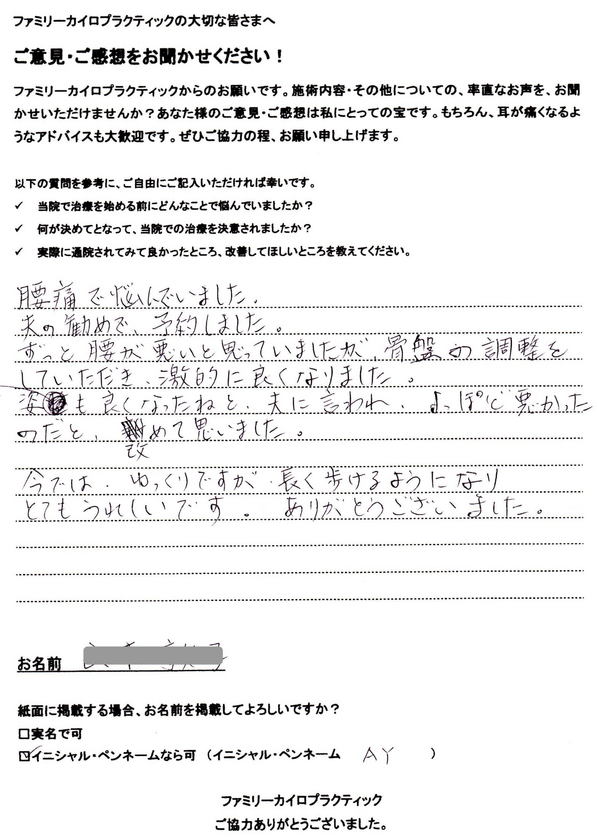 ファミリーカイロプラクティックの大切な皆さまへ
ご意見・ご感想をお聞かせください！
ファミリーカイロプラクティックからのお願いです。施術内容・その他についての、率直なお声を、お聞
かせいただけませんか？あなた様のご意見・ご感想は私にとっての宝です。もちろん、耳が痛くなるよ
うなアドバイスも大歓迎です。ぜひご協力の程、お願い申し上げます。
以下の質問を参考に、ご自由にご記入いただければ幸いです。
✓ 当院で治療を始める前にどんなことで悩んでいましたか？
✓ 何が決めてとなって、当院での治療を決意されましたか？
✓ 実際に通院されてみて良かったところ、改善してほしいところを教えてください。
腰痛で悩んでいました。
夫の勧めで、予約しました。
ずっと腰が悪いと思っていましたが、骨盤の調整を
していただき、激的に良くなりました。
姿も良くなったねと、夫に言われ、よっぽど悪かった
のだと、改めて思いました。
今では、ゆっくりですが、長く歩けるようになり
とてもうれしいです。ありがとうございました。
お名前
紙面に掲載する場合、お名前を掲載してよろしいですか？
□実名で可
☑イニシャル・ペンネームなら可（イニシャル・ペンネーム AY ）
ファミリーカイロプラクティック
ご協力ありがとうございました。